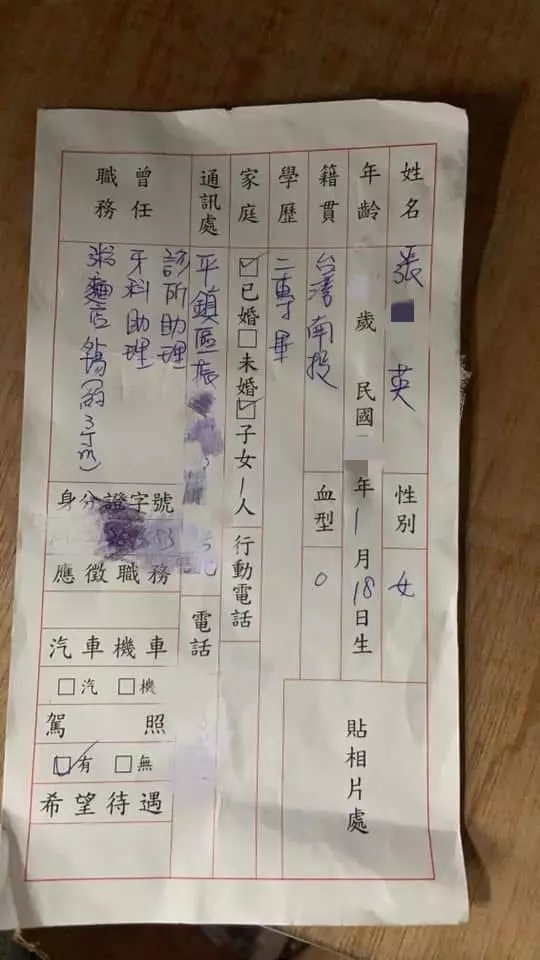 姓名 張 英 性別 女
年齡 歲 民國 年1月18日生
籍貫 台灣南投 血型 O
貼相片處
學歷 二專畢
家庭 ☑已婚□未婚☑子女1人 行動電話
通訊處 平鎮區振 電話
曾任職務
診所助理
牙科助理
粥麵店
身分證字號
應徵職務
汽車機車
□汽 □機
駕照
☑有 □無
希望待遇